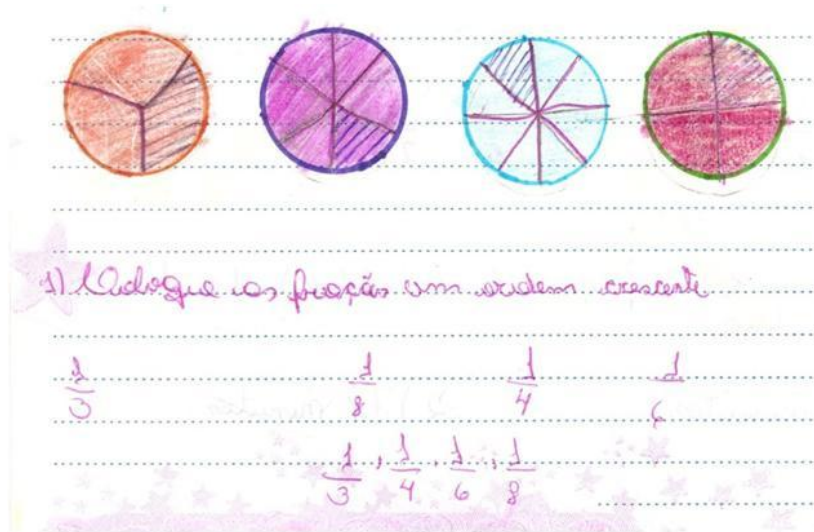 1) Coloque as fração em ordem crescente
1/3 1/8 1/4 1/6
1/3, 1/4, 1/6, 1/8